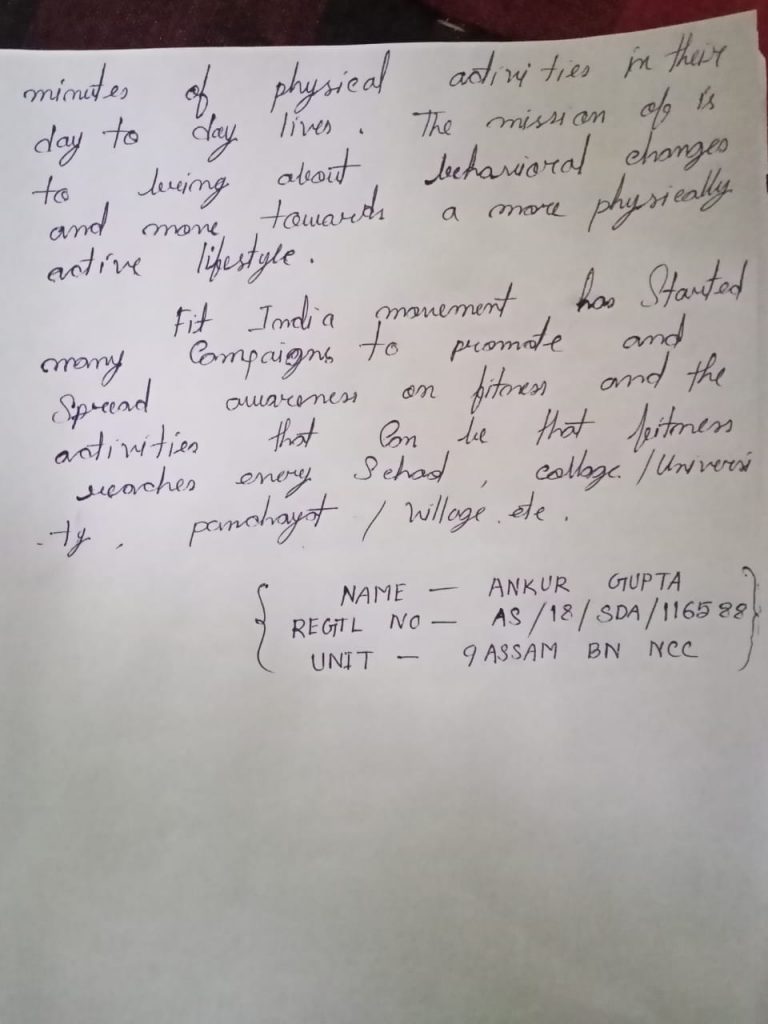 minutes of physical activities in their
day to day lives. The mission of is
to being about behavioral changes
and move towards a more physically
active lifestyle.
Fit India movement has Started
many Campaigns to promote and
Spread awareness on fitness and the
activities that Can be that fitness
reaches every School, collage/Universi
-ty, panchayat / village etc.
{ NAME — ANKUR GUPTA }
REGTL NO — AS/18/SDA/116588
UNIT — 9 ASSAM BN NCC